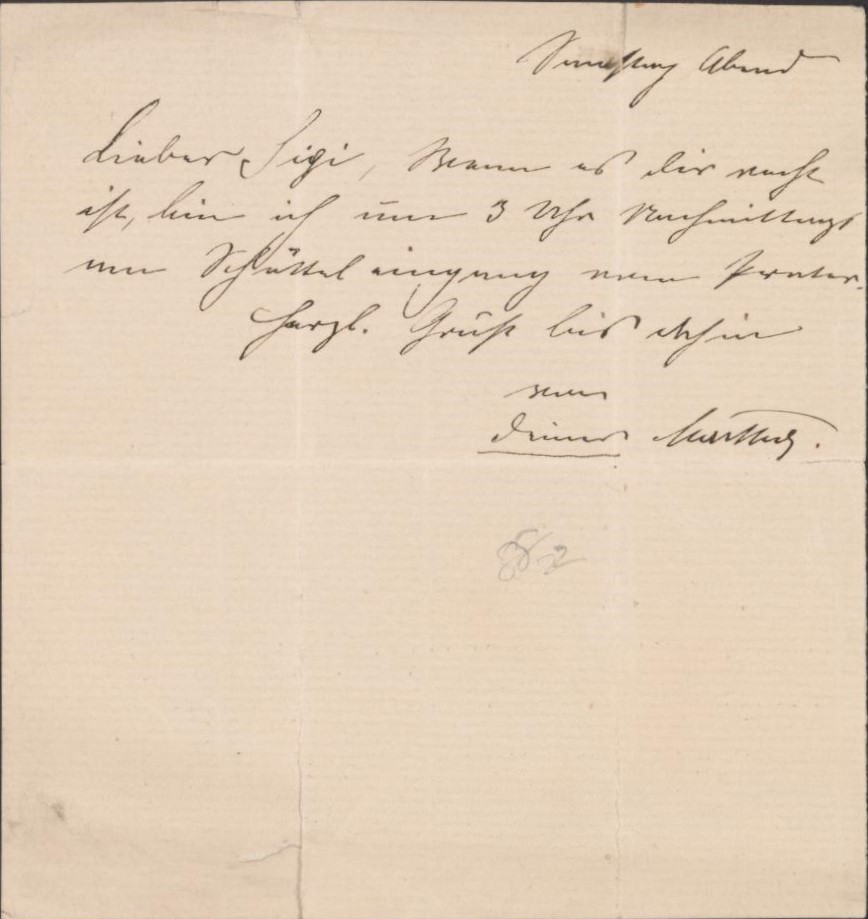 Samstag Abend
Lieber Sigi, Wenn es dir recht
ist, bin ich um 3 Uhr Nachmittags
am Schüttel eingang vom Prater.
Herzl. Gruß bis dahin
von
deiner Martha.